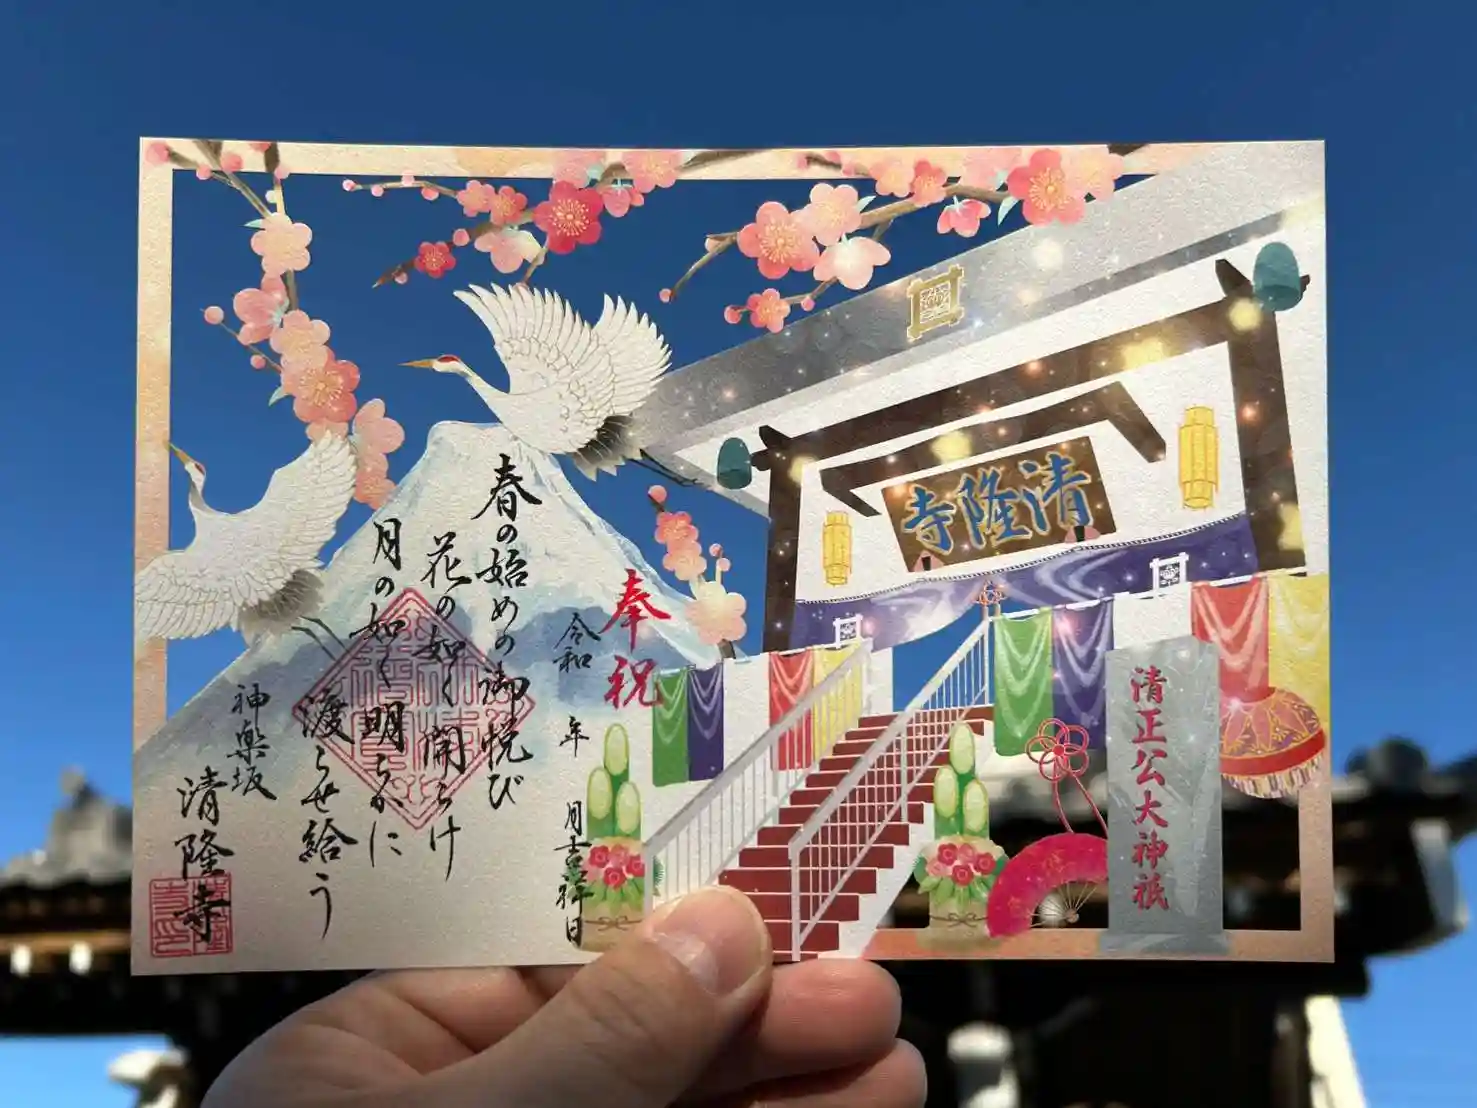 清隆寺
清正公大神祇
奉祝
令和 年 月吉祥日
春の始めの御悦び
花の如く開らけ
月の如く明らかに
渡らせ給う
神楽坂
清隆寺